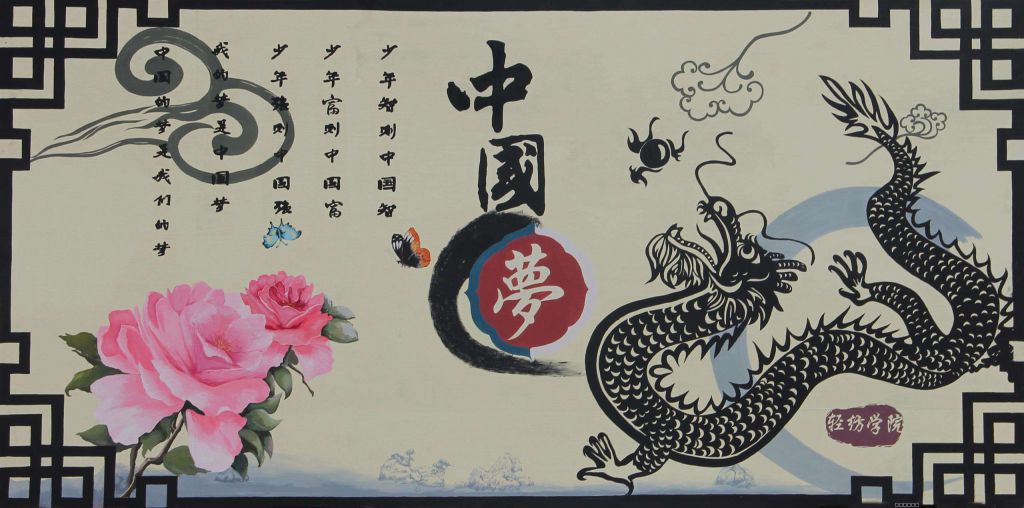 中國
夢
少年智则中国智
少年富则中国富
少年强则中国强
我的梦是中国梦
中国的梦是我们的梦
轻纺学院